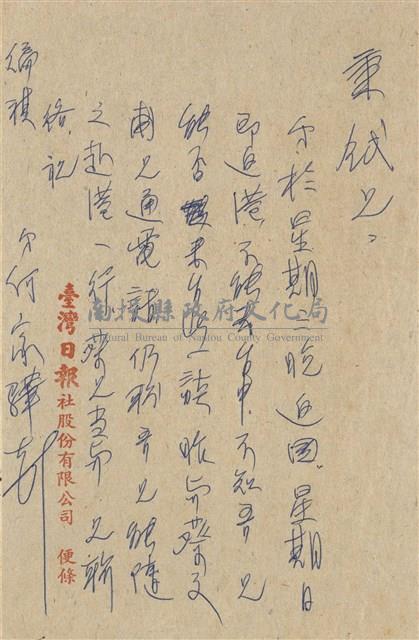 秉鉞兄：
弟於星期二晚返國，星期日
即返港，不能去台中，不知吾兄
能否來台北一談，昨與蔡文
甫兄通電話，仍盼吾兄能陪
之赴港一行，蔡兄當與兄聯
絡，祝
編祺
弟何家驊
臺灣日報社股份有限公司 便條
南投縣政府文化局
Cultural Bureau of Nantou County Government